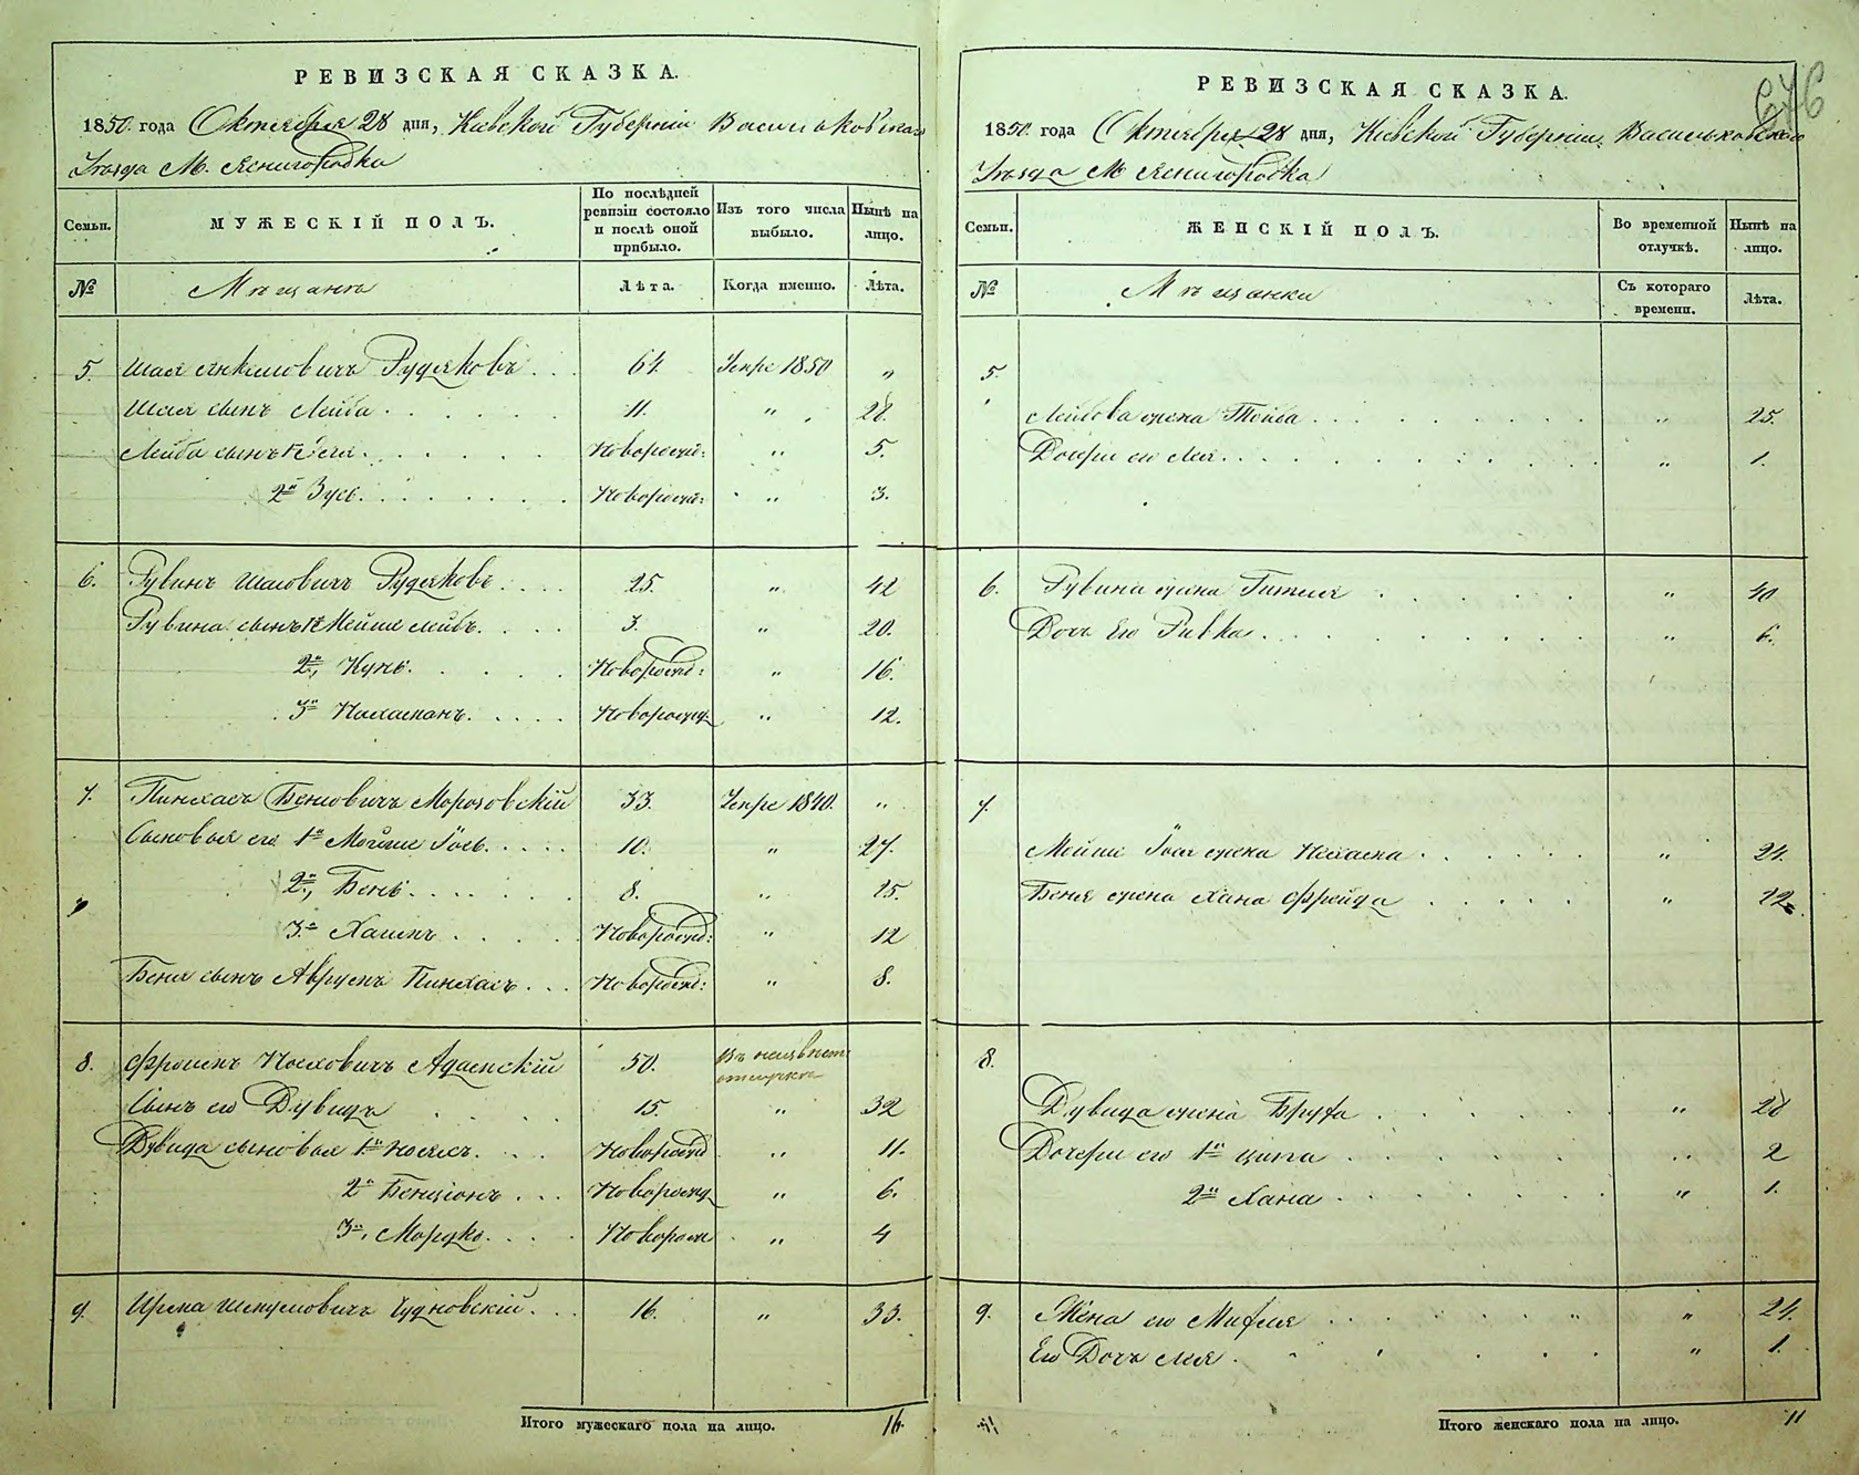 РЕВИЗСКАЯ СКАЗКА.
1850. года Октября 28 дня, Киевской Губерніи Васильковскаго
Уѣзда М. Ясногородка
Семьи.
МУЖЕСКІЙ ПОЛЪ.
По послѣдней ревизіи состояло и послѣ оной прибыло.
Изъ того числа выбыло.
Нынѣ на лицо.
№
Мѣщанъ
Лѣта.
Когда именно.
Лѣта.
5. Шая Янкелювичъ Рудяковъ . . . 64. Умре 1850 „
Шая сынъ Лейба . . . . . 11. „ 28.
Лейба сынъ 1й . . . . . Новорожд: „ 5.
2й Зусь . . . . . Новорожд: „ 3.
6. Рувинъ Шаиовичъ Рудяковъ . . . . 25. „ 42
Рувина сынъ 1й Мейши Лейбъ . . . . 3. „ 20.
2й, . . . . Новорожд: „ 16.
3й . . . . . Новорожд. „ 12.
7. Пинхасъ Беньовичъ Морозовскій 33. Умре 1840. „
Сыновья его 1й Мойше Іось . . . . . 10. „ 27.
2й, Бень . . . . . 8. „ 25.
3й Хаимъ . . . . . Новорожд: „ 12
Беня сынъ Аврумъ Пинхасъ . . . Новорожд: „ 8.
8. Фроимъ Іосховичъ 50. Въ неизвѣст: отлучкѣ
Сынъ его Дувидъ . . . . 15. „ 32
Дувида сыновья 1й . . . Новорожд „ 11.
2й Бенціонъ . . . Новорожд „ 6.
3й, Мордко . . . . Новорож „ 4
9. Чудновскій . . . 16. „ 33.
Итого мужескаго пола на лицо. 16.
РЕВИЗСКАЯ СКАЗКА.
676
1850. года Октября 28 дня, Кіевской Губерніи Васильковскаго
Уѣзда М Ясногородка
Семьи.
ЖЕНСКІЙ ПОЛЪ.
Во временной отлучкѣ.
Нынѣ на лицо.
№
Мѣщанки
Съ котораго времени.
Лѣта.
5.
Лейбова жена Тойба . . . . . . . „ 25.
Дочери его Лея . . . . . . . „ 1.
6. Рувина жена Гитля . . . . . „ 40
Дочь Его Ривка . . . . . . . „ 6.
7.
Мойши Іося жена . . . . . . „ 24.
Беня жена Хана Фрейда . . . . . „ 22.
8.
Дувида жена Бруха . . . . . . „ 28
Дочери его 1я Ципа . . . . . . „ 2
2я Хана . . . . . . . „ 1.
9. Жена его . . . . . . „ 24.
Его Дочь Лея . . . . . . „ 1.
Итого женскаго пола на лицо. 11